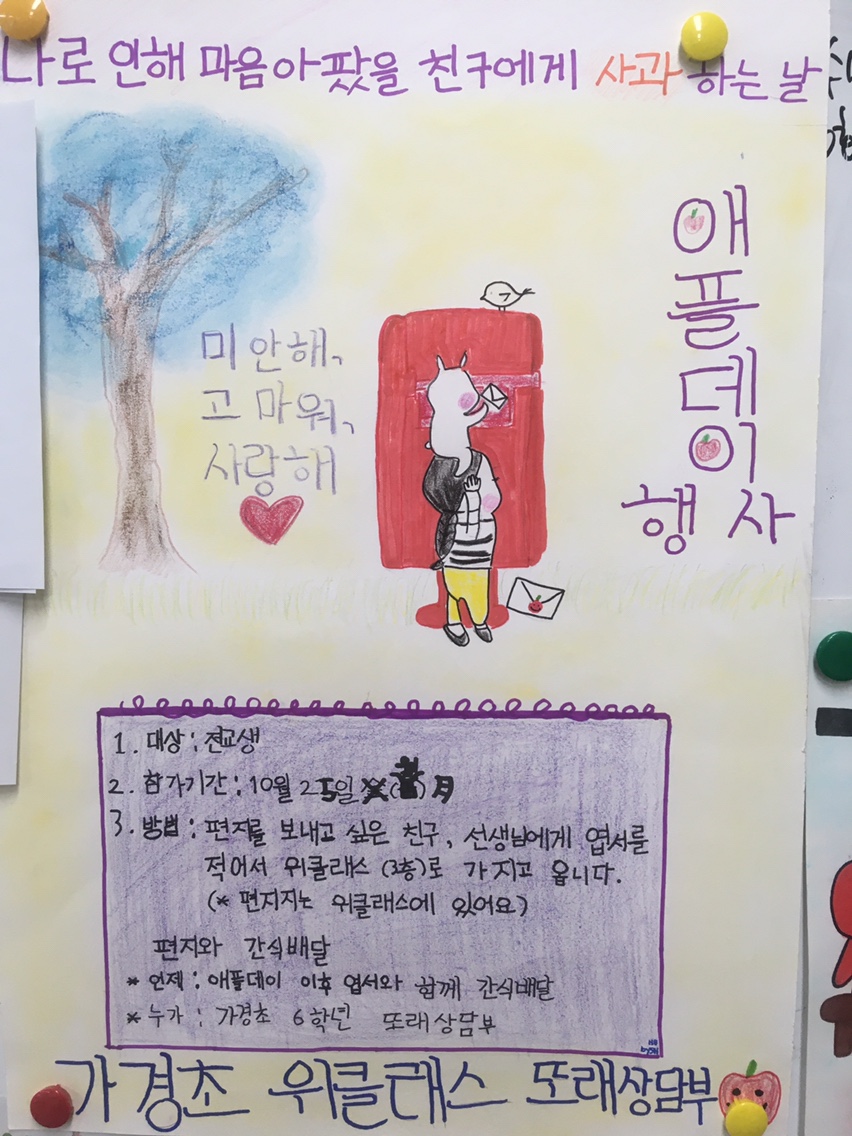 나로 인해 마음 아팠을 친구에게 사과하는 날
애플데이
행사
미안해,
고마워,
사랑해
1. 대상 : 전교생
2. 참가기간 : 10월 25일 ( ) 月
3. 방법 : 편지를 보내고 싶은 친구, 선생님에게 엽서를
적어서 위클래스 (3층)로 가지고 옵니다.
(* 편지지는 위클래스에 있어요)
편지와 간식배달
* 언제 : 애플데이 이후 엽서와 함께 간식배달
* 누가 : 가경초 6학년 또래상담부
가경초 위클래스 또래상담부